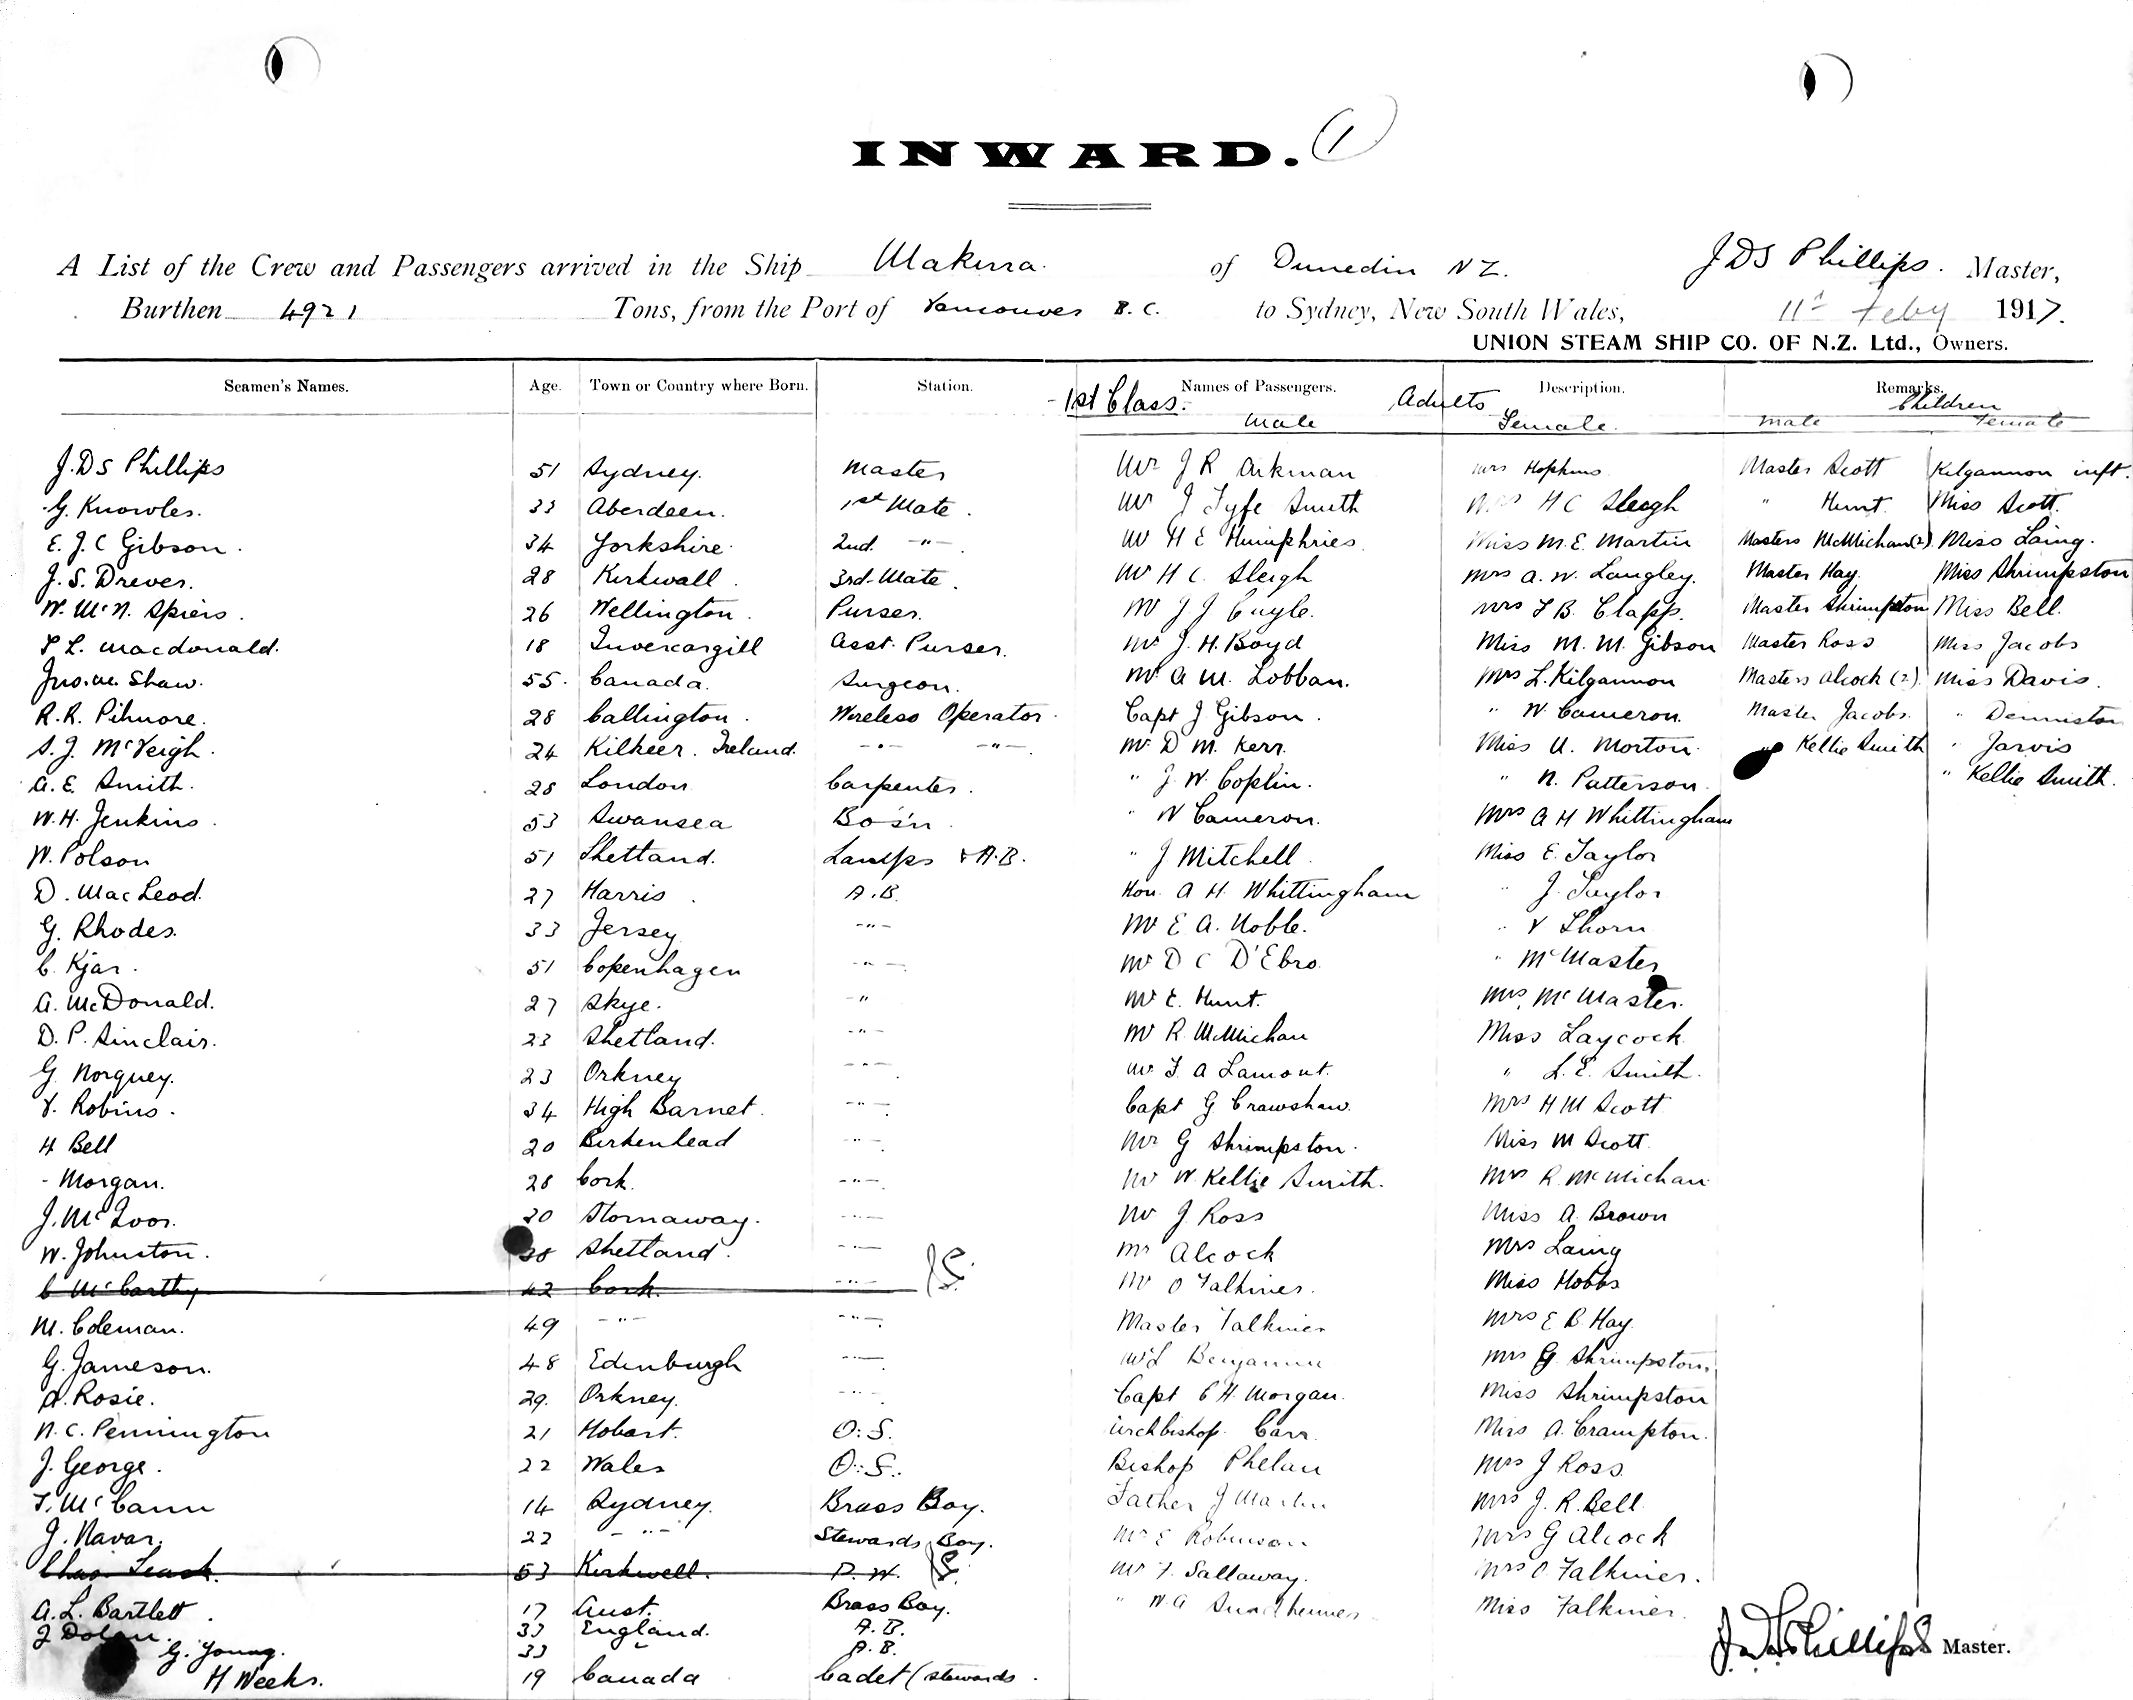 INWARD. 1
A List of the Crew and Passengers arrived in the Ship Makura. of Dunedin NZ. JDS Phillips. Master,
Burthen 4921 Tons, from the Port of Vancouver B.C. to Sydney, New South Wales, 11th Feby 1917.
UNION STEAM SHIP CO. OF N.Z. Ltd., Owners.
Seamen's Names. Age. Town or Country where Born. Station. Names of Passengers. Description. Remarks.
1st Class. Adults Children
Male Female. Male Female
J.DS Phillips 51 Sydney. Master Mr J R Aikman Mrs Hopkins Master Scott Kilgannon inft.
G. Knowles. 33 Aberdeen. 1st Mate. Mr J Fyfe Smith Mrs H C Sleigh " Hunt. Miss Scott.
E. J. C Gibson. 34 Yorkshire. 2nd. -"- Mr H E Humphries Miss M.E. Martin Masters McMichan (2) Miss Laing.
J. S. Drever. 28 Kirkwall. 3rd Mate. Mr H C. Sleigh Mrs A. W. Langley. Master Hay. Miss Shrimpston
W. McN. Spiers. 26 Wellington. Purser. Mr J J Cuyle. Mrs F B. Clapp. Master Shrimpston Miss Bell.
L. Macdonald. 18 Invercargill Asst. Purser. Mr J. H. Boyd Miss M. M. Gibson Master Ross Miss Jacobs
Jno. M. Shaw. 55. Canada. Surgeon. Mr A M. Lobban. Mrs L. Kilgannon Masters Alcock (2). Miss Davis.
R.R. Pilmore. 28 Callington. Wireless Operator Capt J Gibson. " W Cameron. Master Jacobs. " Denniston
S. J. McVeigh. 24 Kilkeer. Ireland. -"- -"- Mr D M. Kerr. Miss U. Morton. " Kellie Smith " Jarvis
A. E. Smith. 28 London Carpenter. " J. W. Coplin. " N. Patterson. " Kellie Smith.
W. H. Jenkins. 53 Swansea Bos'n. " W Cameron. Mrs A H Whittingham
W. Polson 51 Shetland. Lamps & A.B. " J Mitchell. Miss E. Taylor
D. MacLeod. 27 Harris. A.B. Hon. A H. Whittingham " J. Taylor
G. Rhodes. 33 Jersey -"- Mr E A. Noble. " V Thorn
C. Kjar. 51 Copenhagen -"- Mr D C D'Ebro. " McMaster
A. McDonald. 27 Skye. -" Mr E. Hunt. Mrs. McMaster.
D. P. Sinclair. 23 Shetland. -"- Mr R. McMichan Miss Laycock
G. Norquey. 23 Orkney -"- Mr F. A Lamont. " L. E. Smith.
V. Robins. 34 High Barnet. -"- Capt G Crawshaw. Mrs H M Scott
H Bell 20 Birkenhead -"- Mr G Shrimpston. Miss M Scott.
- Morgan. 28 Cork. -"- Mr W. Kellie Smith. Mrs R. McMichan
J. McIvor. 30 Stornaway. -"- Mr J Ross Miss A. Brown
W. Johnston. 38 Shetland. -"- Mr Alcock Mrs Laing
C McCarthy 42 Cork. -"- Mr O Falkiner. Miss Hobbs
M. Coleman. 49 -"- -"- Master Falkiner Mrs E B. Hay.
G. Jameson. 48 Edinburgh -"- Mrs G Shrimpston.
Rosie. 29. Orkney. -"- Capt C H. Morgan. Miss Shrimpston
N. C. Pennington 21 Hobart. O.S. Archbishop Carr. Miss A. Crampton.
J. George. 22 Wales O.S. Bishop Phelan Mrs J Ross.
T. McCann 14 Sydney. Brass Boy. Father J Martin Mrs J. R. Bell.
J. Navar. 22 -"- Stewards Boy. Mr E Robinson Mrs G Alcock
Chas. Leask. 53 Kirkwell. P. W. Mr F. Sallaway. Mrs O Falkiner.
A. L. Bartlett. 17 Aust. Brass Boy. " W A Miss Falkiner.
J Dolan. 33 England. A.B.
G. Young. 33 " A.B.
H Weeks. 19 Canada Cadet (Stewards.
JDS Phillips Master.